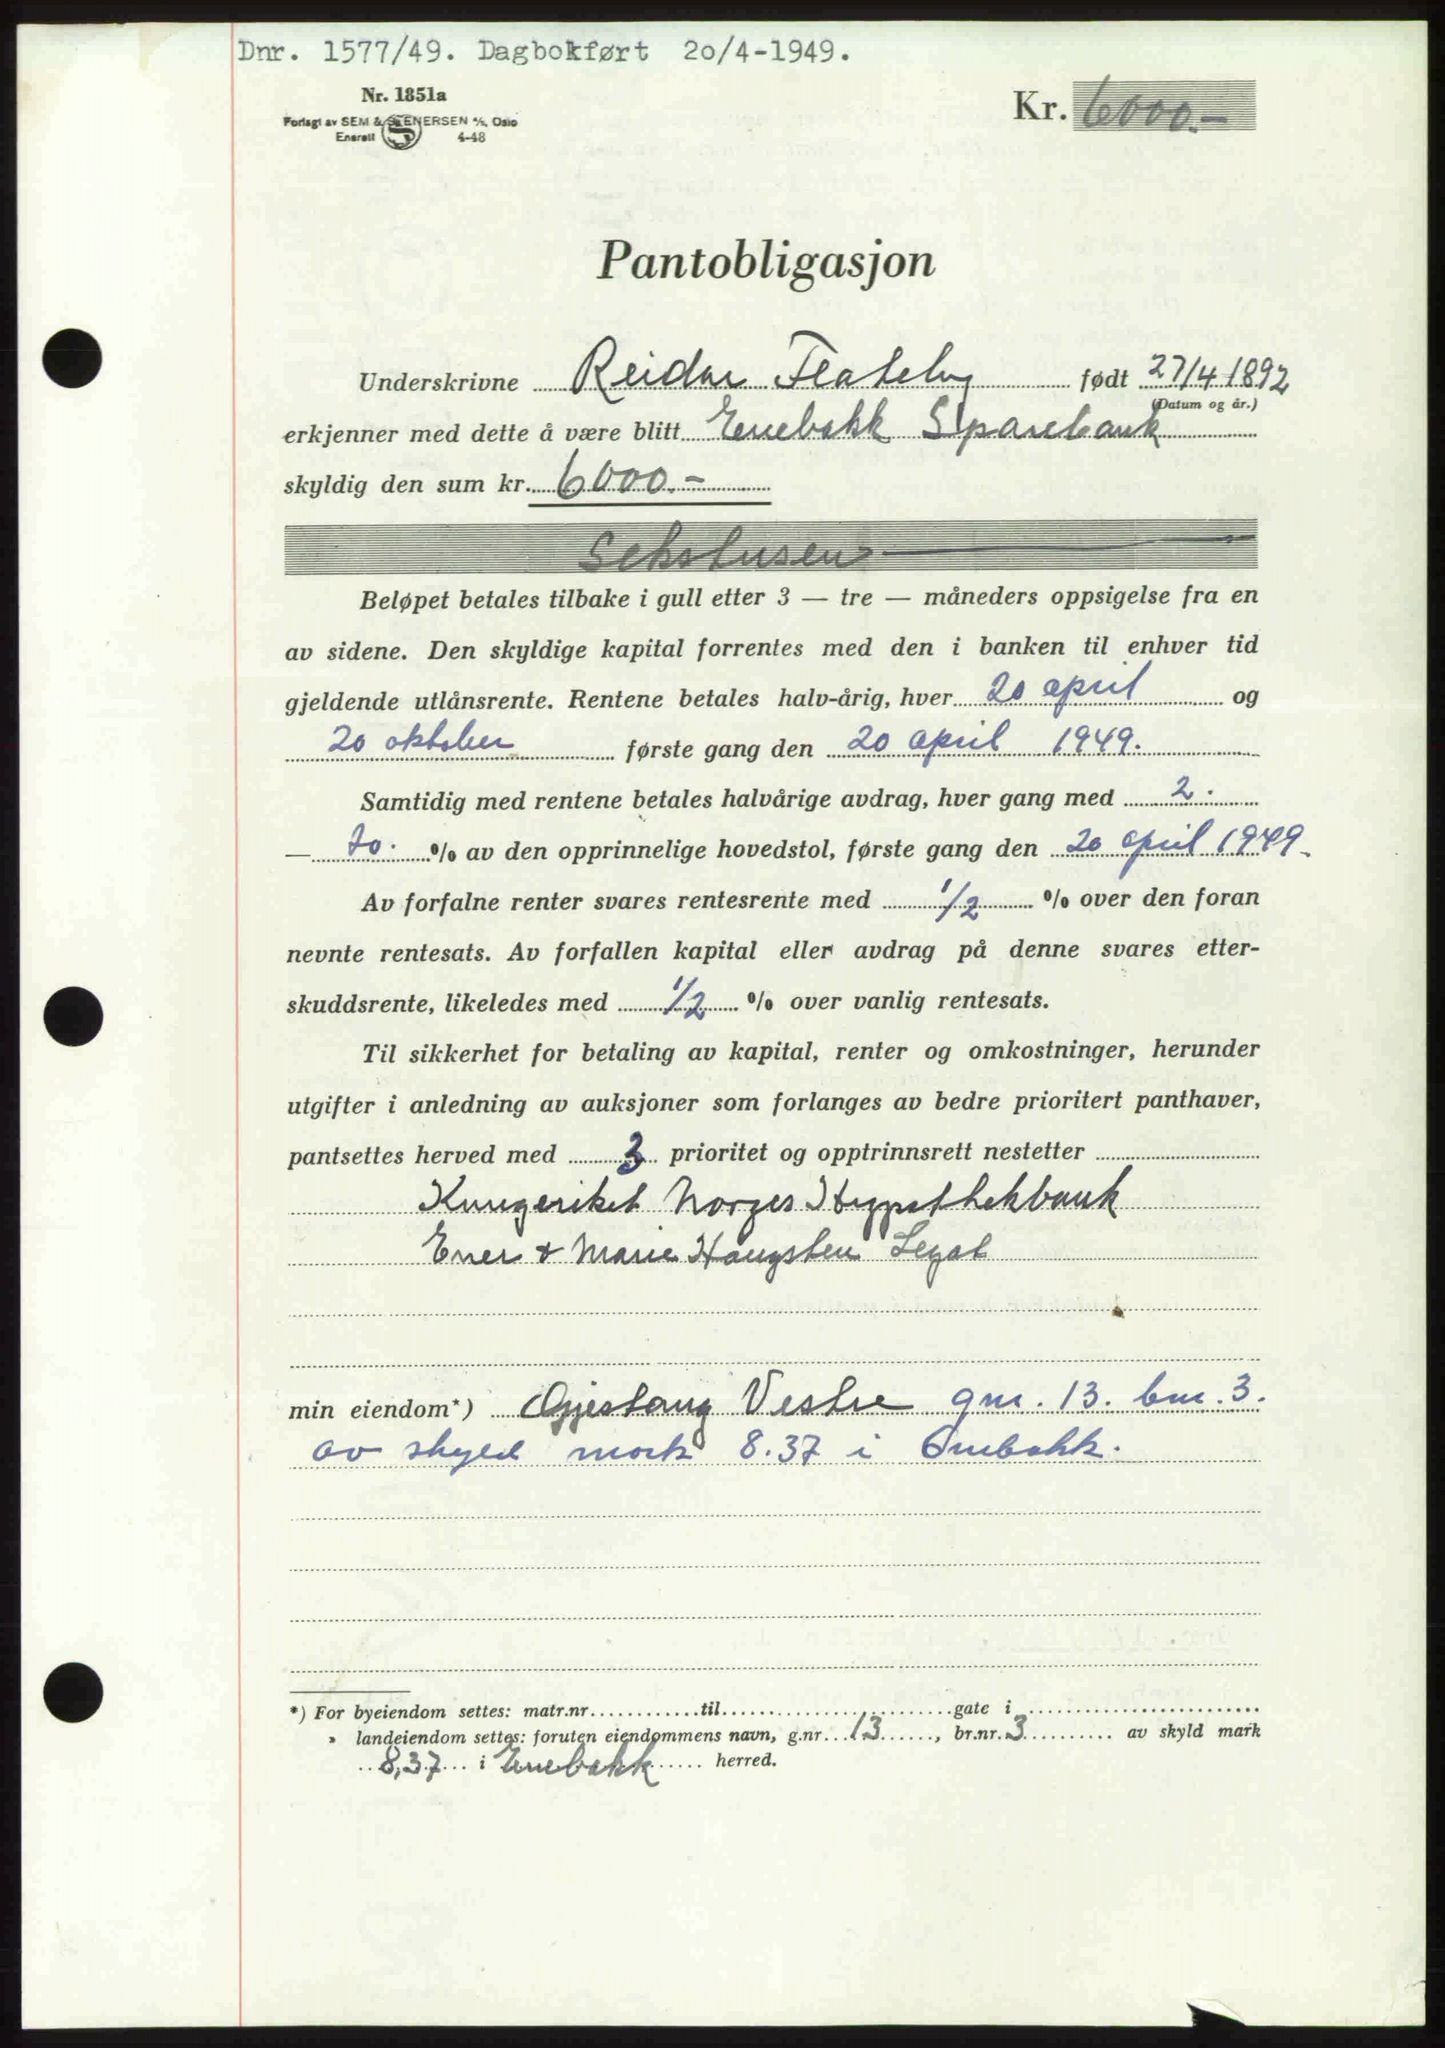 Dnr. 1577/49. Dagbokført 20/4-1949.
Nr. 1851a
Forlagt av SEM & STENERSEN A/S, Oslo
Enerett 4-48
Kr. 6000.-
Pantobligasjon
Underskrivne Reidar Flateby født 27/4 1892
(Datum og år.)
erkjenner med dette å være blitt Enebakk Sparebank
skyldig den sum kr. 6000.-
Sekstusen
Beløpet betales tilbake i gull etter 3 — tre — måneders oppsigelse fra en
av sidene. Den skyldige kapital forrentes med den i banken til enhver tid
gjeldende utlånsrente. Rentene betales halv-årig, hver 20 april og
20 oktober første gang den 20 april 1949.
Samtidig med rentene betales halvårige avdrag, hver gang med 2.
— to. % av den opprinnelige hovedstol, første gang den 20 april 1949.
Av forfalne renter svares rentesrente med 1/2 % over den foran
nevnte rentesats. Av forfallen kapital eller avdrag på denne svares etter-
skuddsrente, likeledes med 1/2 % over vanlig rentesats.
Til sikkerhet for betaling av kapital, renter og omkostninger, herunder
utgifter i anledning av auksjoner som forlanges av bedre prioritert panthaver,
pantsettes herved med 3 prioritet og opptrinnsrett nestetter
Kongeriket Norges Hypothekbank
Ener & Marie Haugsten Legat
min eiendom*) Gjestang Vestre gnr. 13. bnr. 3.
av skyld mark 8.37 i Enebakk.
*) For byeiendom settes: matr.nr. til gate i
» landeiendom settes: foruten eiendommens navn, g.nr. 13, br.nr. 3 av skyld mark
8,37 i Enebakk herred.